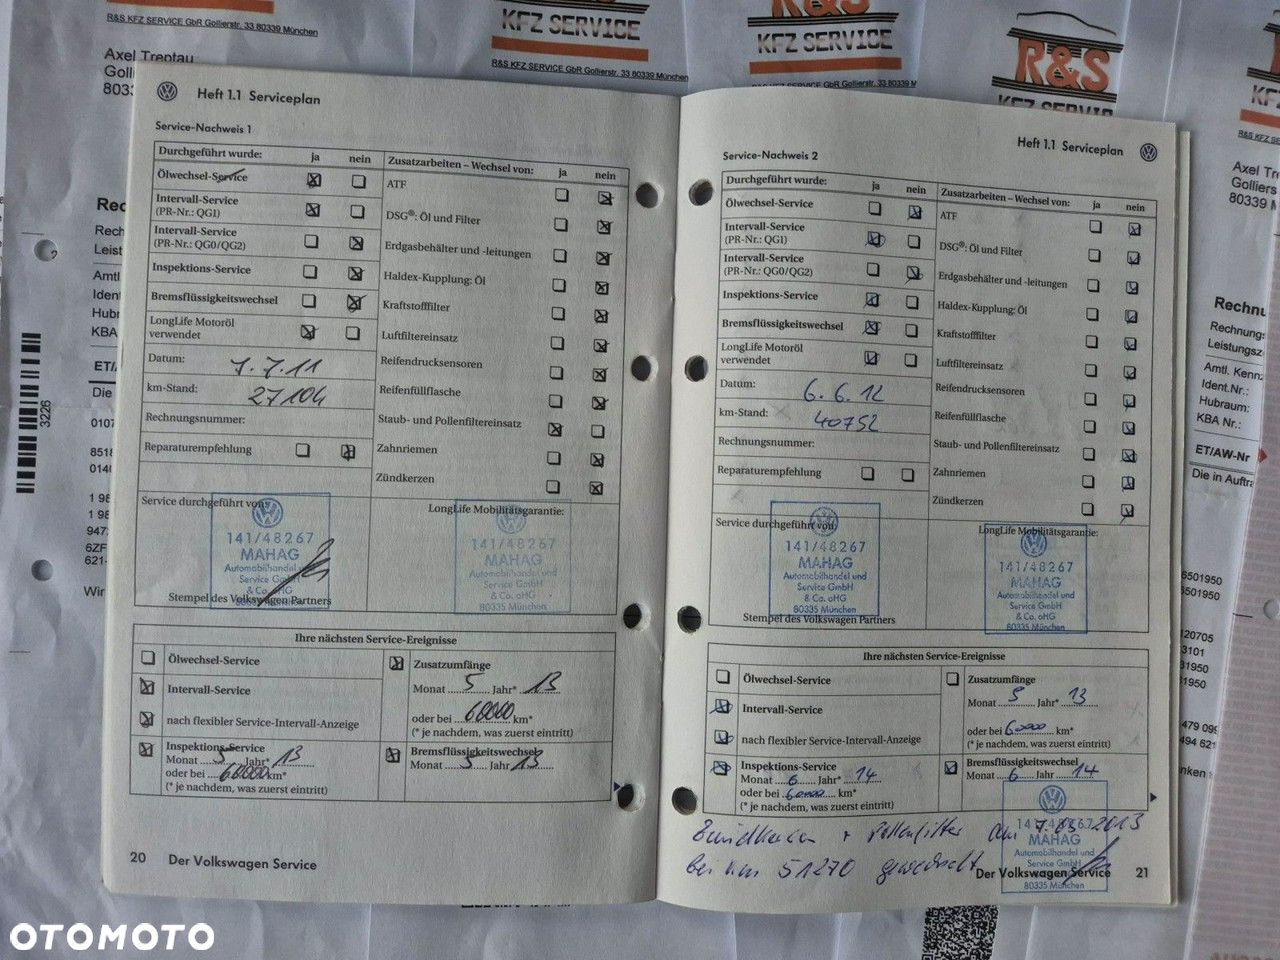 R&S KFZ SERVICE GbR Gollierstr. 33 80339 München
Axel Treptau
KFZ SERVICE
R&S KFZ SERVICE GbR Gollierstr. 33 80339 München
R&S
KFZ SERVICE
R&S
KFZ SERVICE
3226
Heft 1.1 Serviceplan
Service-Nachweis 1
Durchgeführt wurde: ja nein
Ölwechsel-Service
Intervall-Service
(PR-Nr.: QG1)
Intervall-Service
(PR-Nr.: QG0/QG2)
Inspektions-Service
Bremsflüssigkeitswechsel
LongLife Motoröl
verwendet
Datum: 7.7.11
km-Stand: 27104
Rechnungsnummer:
Reparaturempfehlung
Zusatzarbeiten – Wechsel von: ja nein
ATF
DSG®: Öl und Filter
Erdgasbehälter und -leitungen
Haldex-Kupplung: Öl
Kraftstofffilter
Luftfiltereinsatz
Reifendrucksensoren
Reifenfüllflasche
Staub- und Pollenfiltereinsatz
Zahnriemen
Zündkerzen
Service durchgeführt von:
141/48267
MAHAG
Automobilhandel und
Service GmbH
& Co. oHG
80335 München
Stempel des Volkswagen Partners
LongLife Mobilitätsgarantie:
141/48267
MAHAG
Automobilhandel und
Service GmbH
& Co. oHG
80335 München
Ihre nächsten Service-Ereignisse
Ölwechsel-Service
Intervall-Service
nach flexibler Service-Intervall-Anzeige
Inspektions-Service
Monat 5 Jahr* 13
oder bei 60000 km*
(* je nachdem, was zuerst eintritt)
Zusatzumfänge
Monat 5 Jahr* 13
oder bei 60000 km*
(* je nachdem, was zuerst eintritt)
Bremsflüssigkeitswechsel
Monat 5 Jahr 13
20 Der Volkswagen Service
Heft 1.1 Serviceplan
Service-Nachweis 2
Durchgeführt wurde: ja nein
Ölwechsel-Service
Intervall-Service
(PR-Nr.: QG1)
Intervall-Service
(PR-Nr.: QG0/QG2)
Inspektions-Service
Bremsflüssigkeitswechsel
LongLife Motoröl
verwendet
Datum: 6.6.12
km-Stand: 40752
Rechnungsnummer:
Reparaturempfehlung
Zusatzarbeiten – Wechsel von: ja nein
ATF
DSG®: Öl und Filter
Erdgasbehälter und -leitungen
Haldex-Kupplung: Öl
Kraftstofffilter
Luftfiltereinsatz
Reifendrucksensoren
Reifenfüllflasche
Staub- und Pollenfiltereinsatz
Zahnriemen
Zündkerzen
Service durchgeführt von:
141/48267
MAHAG
Automobilhandel und
Service GmbH
& Co. oHG
80335 München
Stempel des Volkswagen Partners
LongLife Mobilitätsgarantie:
141/48267
MAHAG
Automobilhandel und
Service GmbH
& Co. oHG
80335 München
Ihre nächsten Service-Ereignisse
Ölwechsel-Service
Intervall-Service
nach flexibler Service-Intervall-Anzeige
Inspektions-Service
Monat 6 Jahr* 14
oder bei 60000 km*
(* je nachdem, was zuerst eintritt)
Zusatzumfänge
Monat 5 Jahr* 13
oder bei 60000 km*
(* je nachdem, was zuerst eintritt)
Bremsflüssigkeitswechsel
Monat 6 Jahr 14
+ Pollenfilter am 7.03.2013
bei km 51270 gewechselt
141/48267
MAHAG
Automobilhandel und
Service GmbH
& Co. oHG
80335 München
Der Volkswagen Service 21
Axel
Golliers
80339 M
Rechnu
Rechnungs
Leistungsz
Amtl. Kennz
Ident.Nr.:
Hubraum:
KBA Nr.:
ET/AW-Nr
Die in Auftra
OTOMOTO